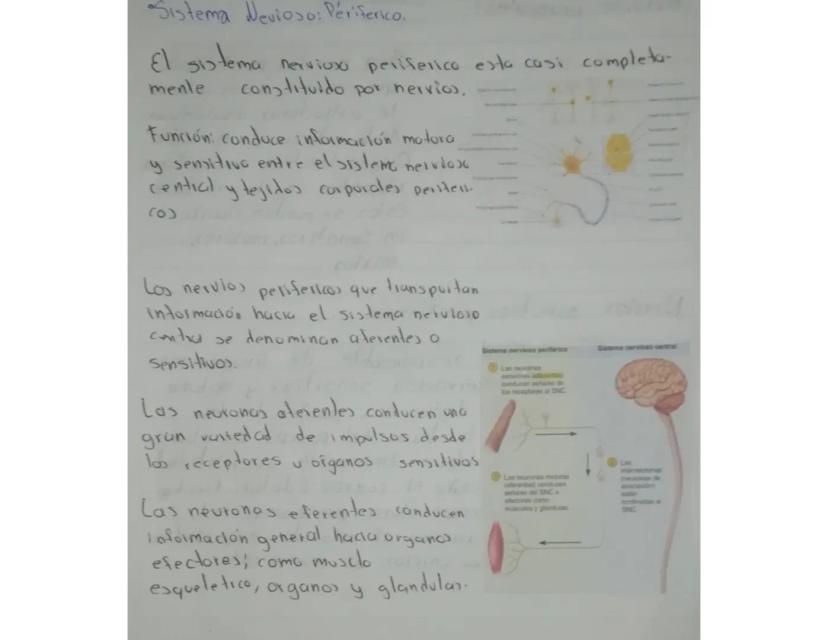 Sistema Nervioso: Périferico.
El sistema nervioso periferico esta casi completa-
mente constituido por nervios.
Función: conduce información motora
y sensitiva entre el sistema nervioso
central y tejidos corporales periferi-
cos
Los nervios perifericos que transportan
información hacia el sistema nervioso
central se denominan aferentes o
sensitivos.
Las neuronas aferentes conducen una
gran variedad de impulsos desde
los receptores u órganos sensitivos
Las neuronas eferentes conducen
información general hacia organos
efectores; como musclo
esqueletico, organos y glandulas.
Sistema nervioso periférico
Sistema nervioso central
1 Las neuronas
sensitivas (aferentes)
conducen señales de
los receptores al SNC.
2 Las
interneuronas
(neuronas de
asociación)
están
confinadas al
SNC.
3 Las neuronas motoras
(eferentes) conducen
señales del SNC a
efectores como
músculos y glándulas.